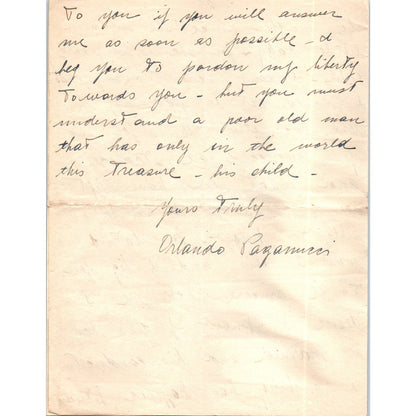 To you if you will answer
me as soon as possible - d
beg you to pardon my liberty
Towards you - but you must
understand a poor old man
that has only in the world
this Treasure - his child -
Yours Truly
Orlando Paganucci